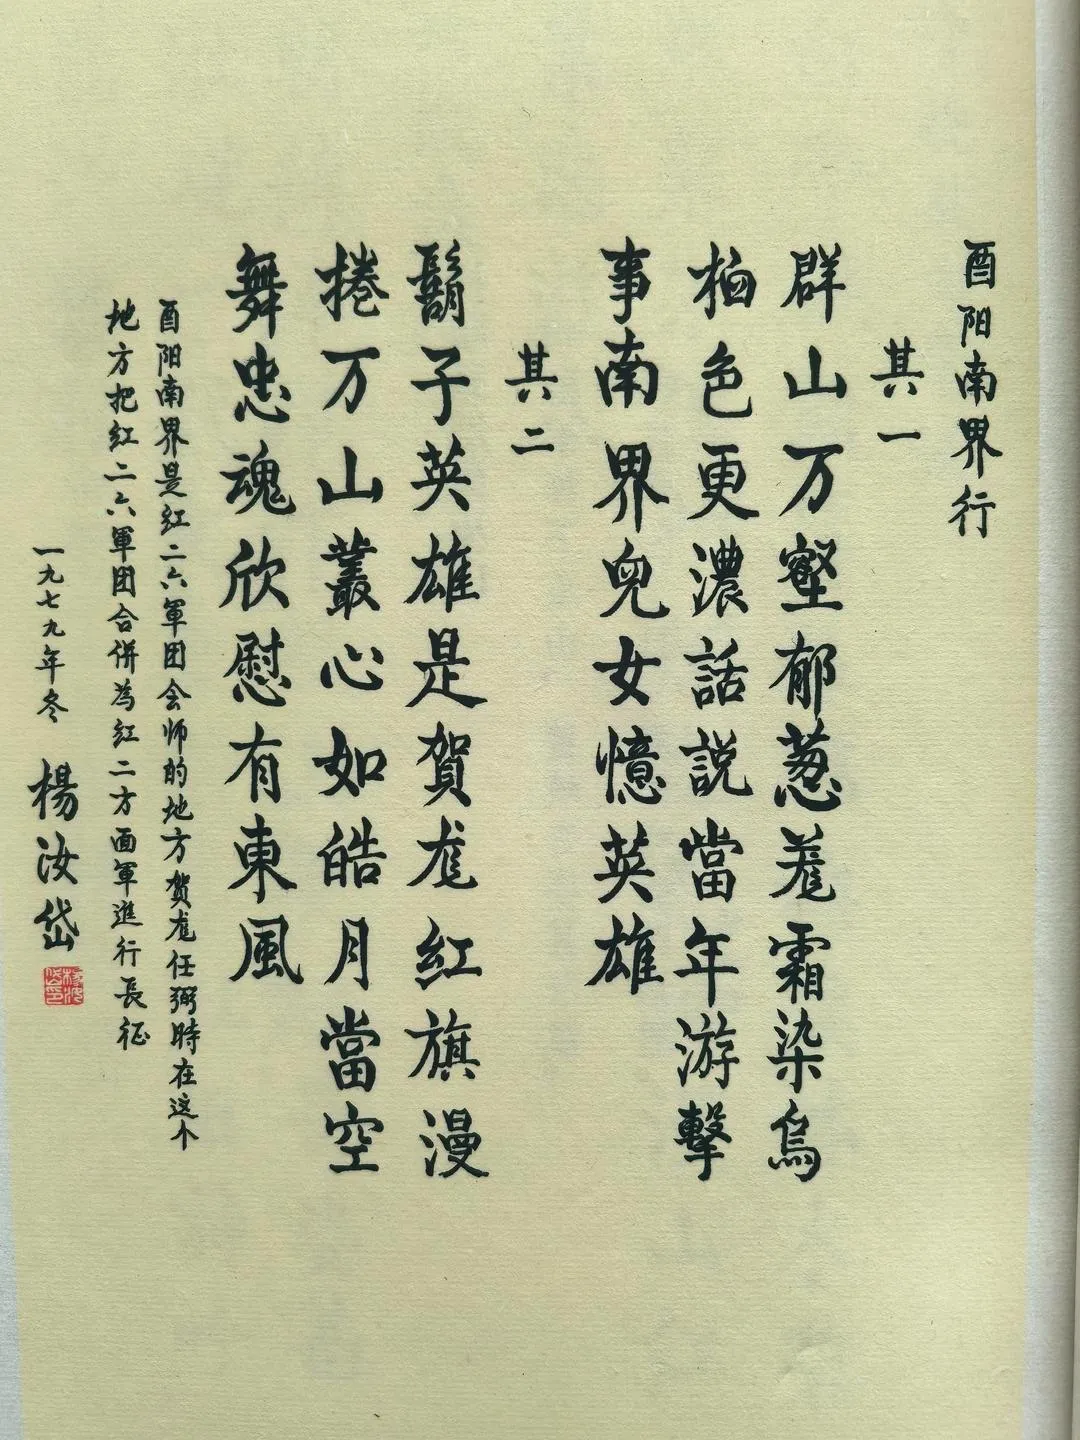 酉阳南界行
其一
群山万壑郁葱茏霜染烏
桕色更濃話説當年游擊
事南界兒女憶英雄
其二
鬍子英雄是賀龙红旗漫
捲万山叢心如皓月當空
舞忠魂欣慰有東風
酉阳南界是红二六軍团会师的地方贺龙任弼時在这个
地方把红二六軍团合併為红二方面軍進行長征
一九七九年冬 楊汝岱